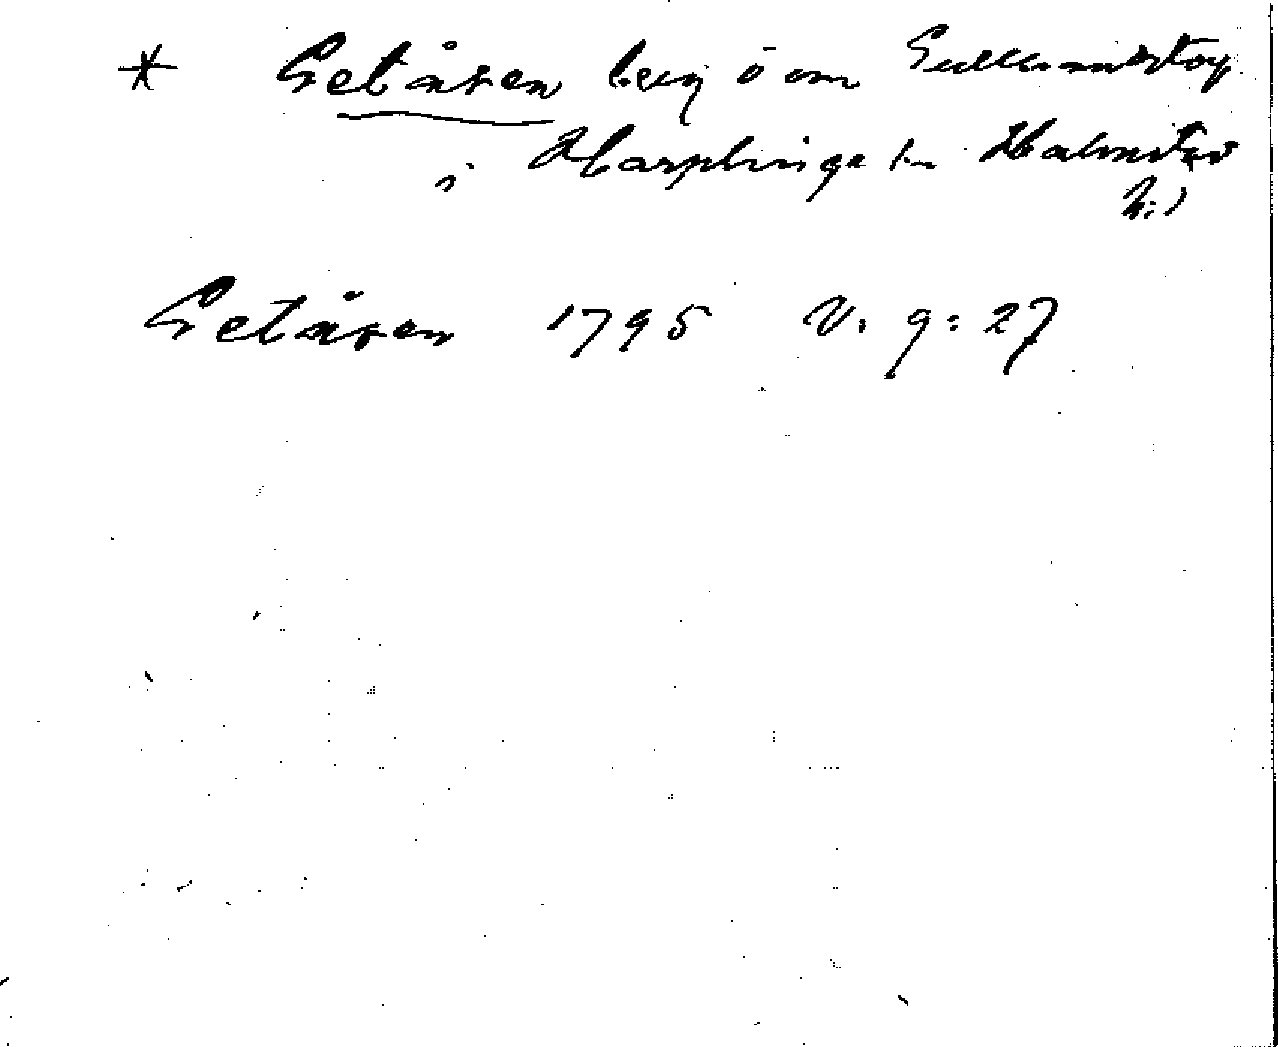 * Getåsen berg ö om Gullbrandstorp
i Harplinge sn Halmstad
h.)
Getåsen 1795 V. 9:27